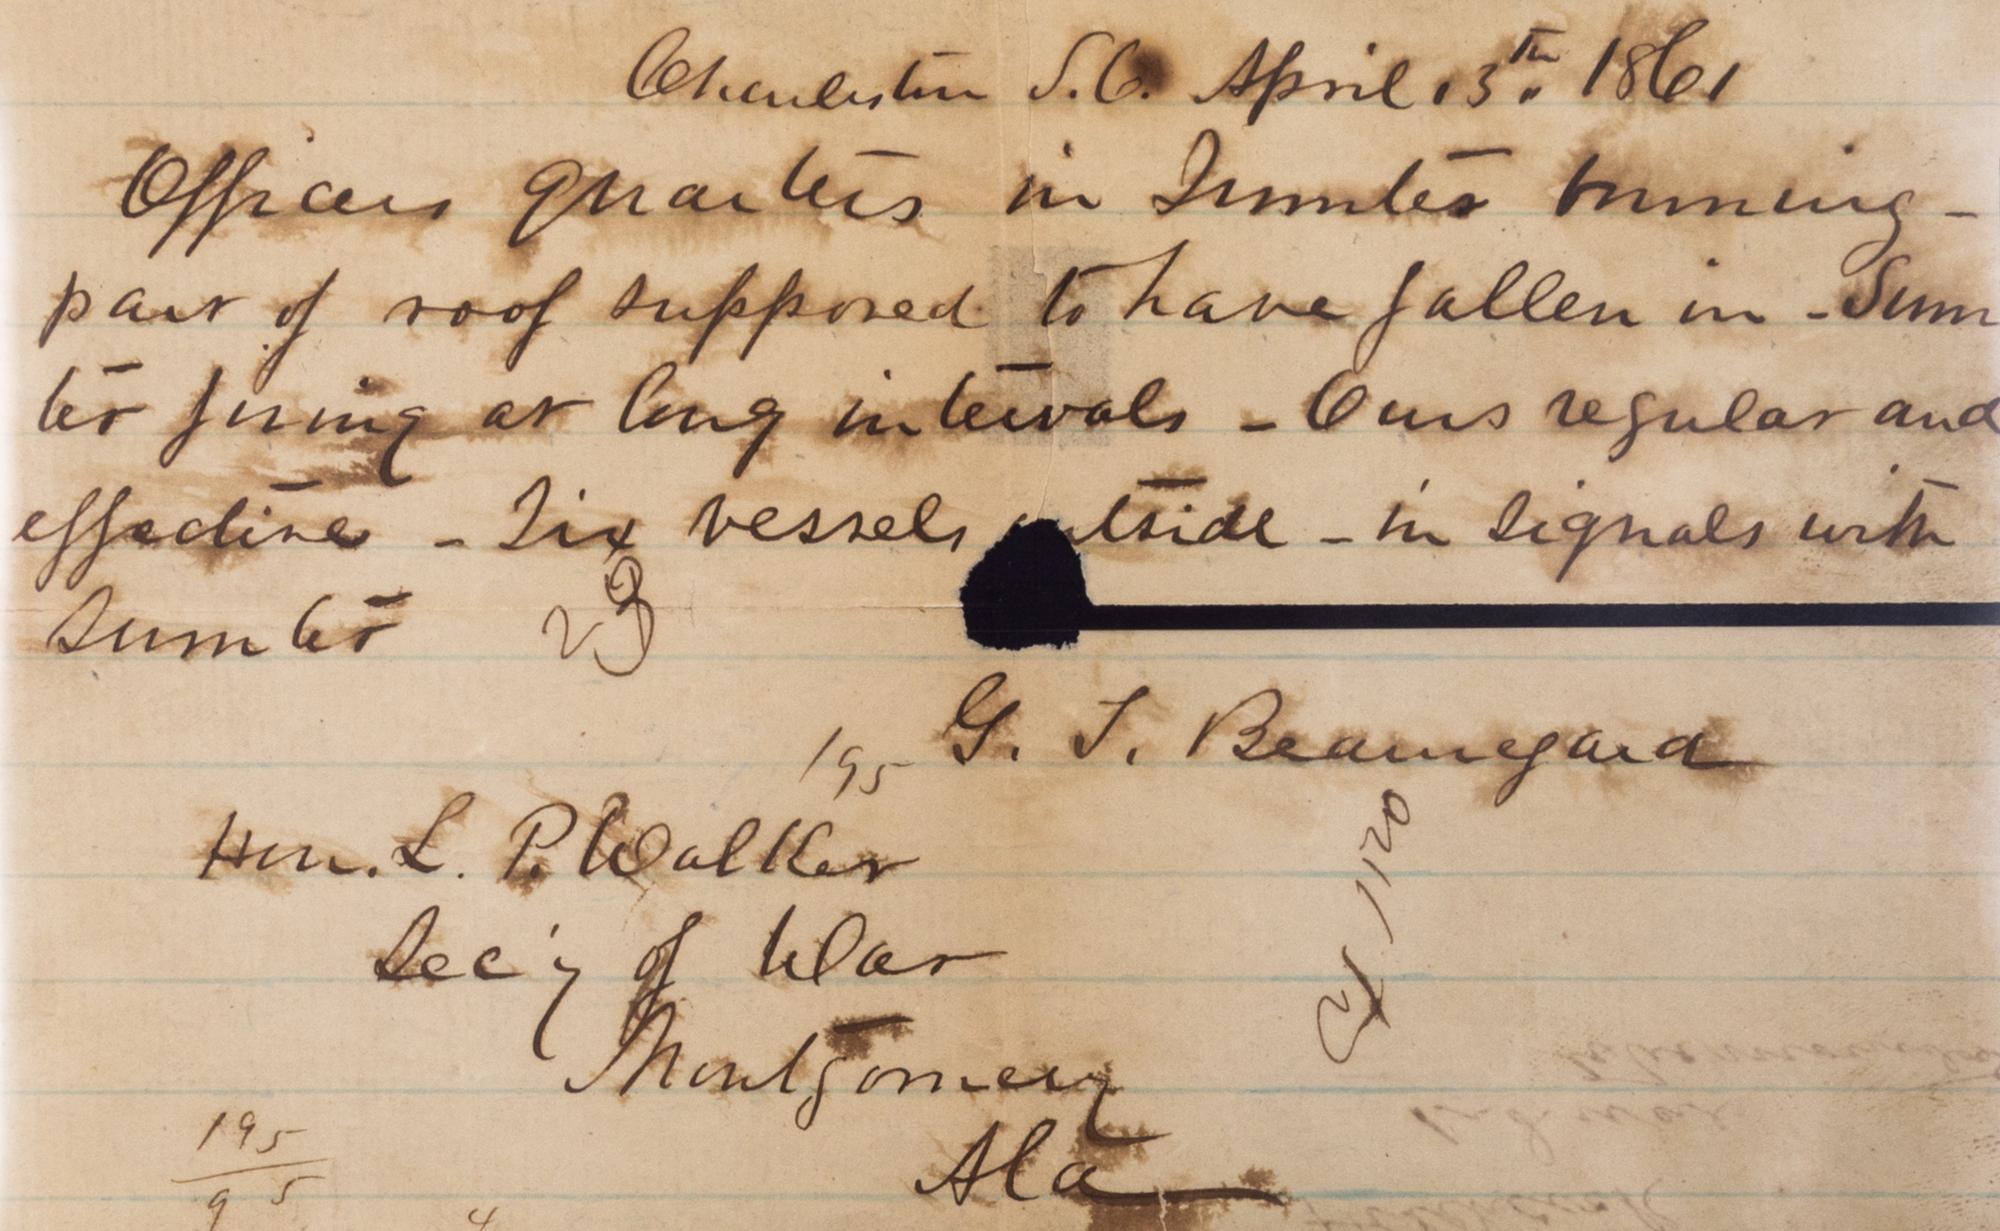 Charleston S.C. April 13th 1861
Officers quarters in Sumter burning -
part of roof supposed to have fallen in - Sum
ter firing at long intervals - Ours regular and
effective - Six vessels outside - in signals with
Sumter 23
G. T. Beauregard
195
Hon. L. P. Walker
Sec'y of War
Montgomery
Ala
1120
195
95
4